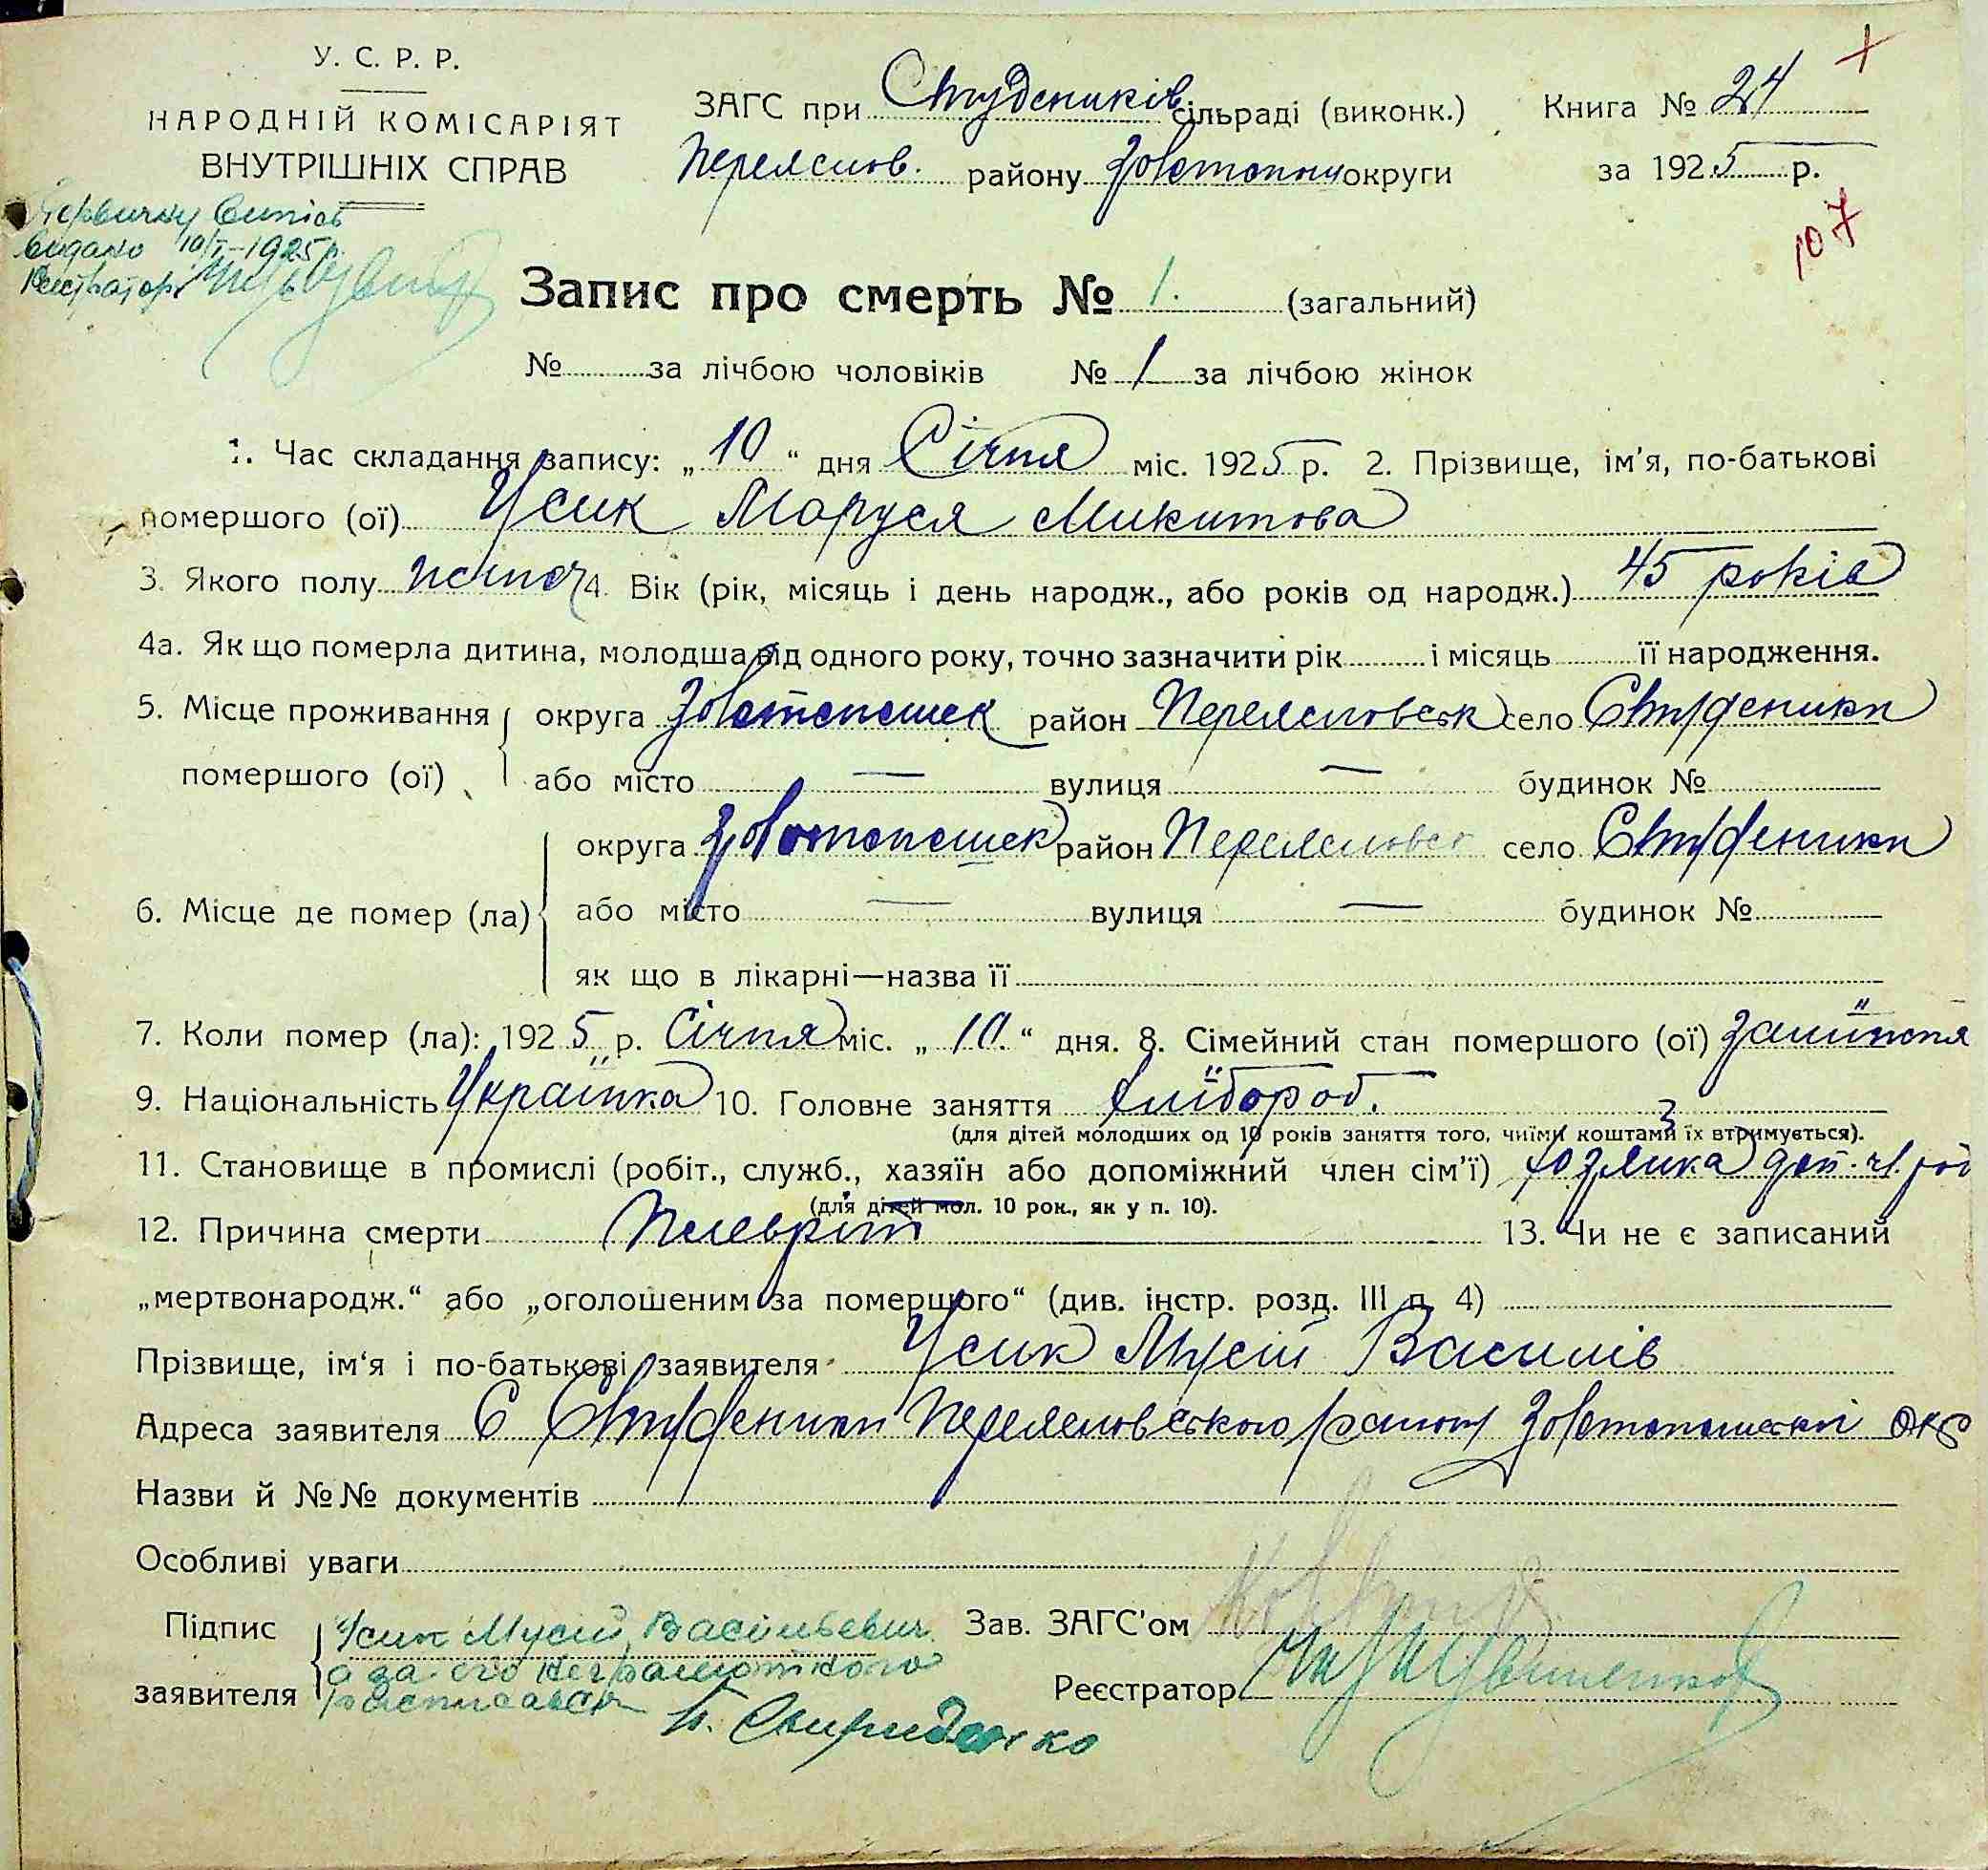 У. С. Р. Р.
НАРОДНІЙ КОМІСАРІЯТ
ВНУТРІШНІХ СПРАВ
ЗАГС при Студеників сільраді (виконк.)
Переяслов. району Золотонош округи
Книга № 24
за 1925 р.
107
видано 10/I-1925р.
Запис про смерть № 1. (загальний)
№ за лічбою чоловіків № 1 за лічбою жінок
1. Час складання запису: „10“ дня Січня міс. 1925 р. 2. Прізвище, ім’я, по-батькові
помершого (ої) Усик Маруся Микитова
3. Якого полу 4. Вік (рік, місяць і день народж., або років од народж.) 45 років
4а. Як що померла дитина, молодша від одного року, точно зазначити рік і місяць її народження.
5. Місце проживання помершого (ої) округа Золотоношськ район Переясловськ село Студеники
або місто — вулиця — будинок №
6. Місце де помер (ла) округа Золотоношськ район Переясловсь село Студеники
або місто — вулиця — будинок №
як що в лікарні—назва її
7. Коли помер (ла): 1925 р. Січня міс. „10.“ дня. 8. Сімейний стан помершого (ої)
9. Національність Українка 10. Головне заняття Хлібороб.
(для дітей молодших од 10 років заняття того, чиїми коштами їх втримується).
11. Становище в промислі (робіт., служб., хазяїн або допоміжний член сім’ї)
(для дітей мол. 10 рок., як у п. 10).
12. Причина смерти Плеврит 13. Чи не є записаний
„мертвонародж.“ або „оголошеним за помершого“ (див. інстр. розд. III п. 4)
Прізвище, ім’я і по-батькові заявителя Усик Мусій Василів
Адреса заявителя С Студеники Переясловського району Золотоношської окр
Назви й №№ документів
Особливі уваги
Підпис заявителя Усик Мусій Васильевич
а за его неграмотного
расписался
Свириденко
Зав. ЗАГС’ом
Реєстратор